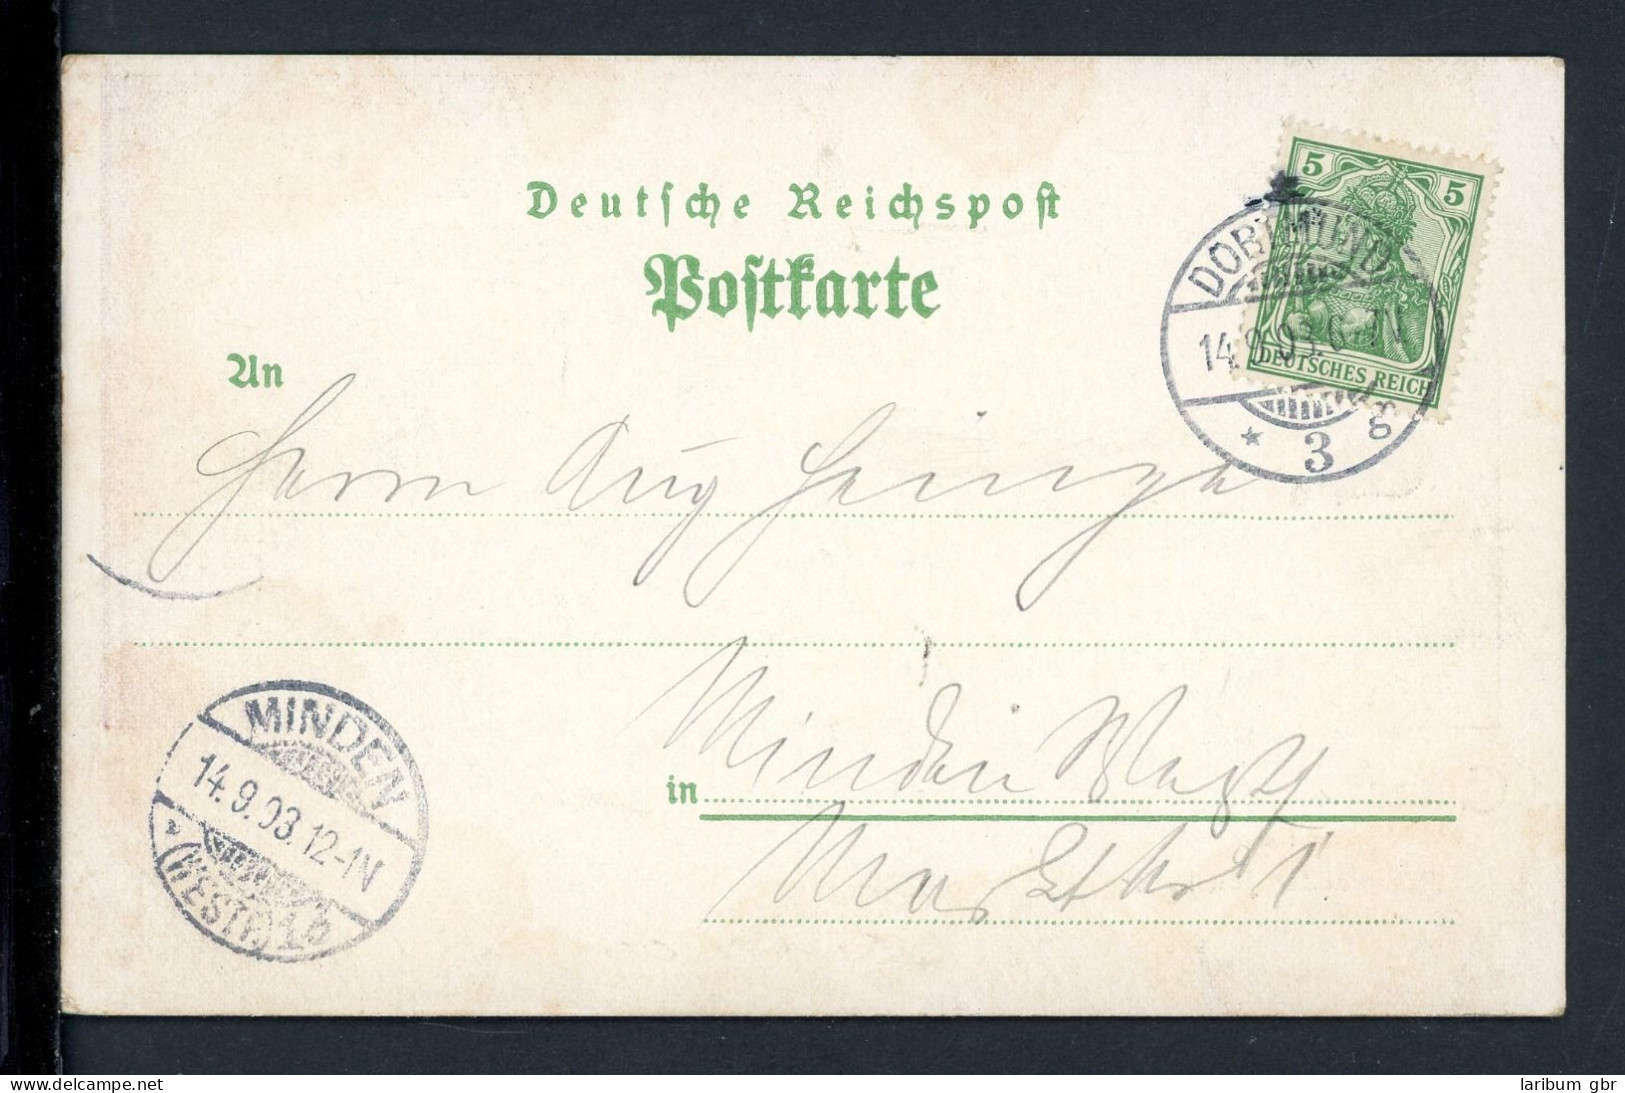 Deutsche Reichspost
Postkarte
5 5
DEUTSCHES REICH
DORTMUND
14.9.03. 6-7V
* 3 g
An
Herrn Aug Heinze
in Minden Westf
MINDEN
14.9.03.12-1N
* (WESTF.) 1 b
delcampe.net
laribum gbr